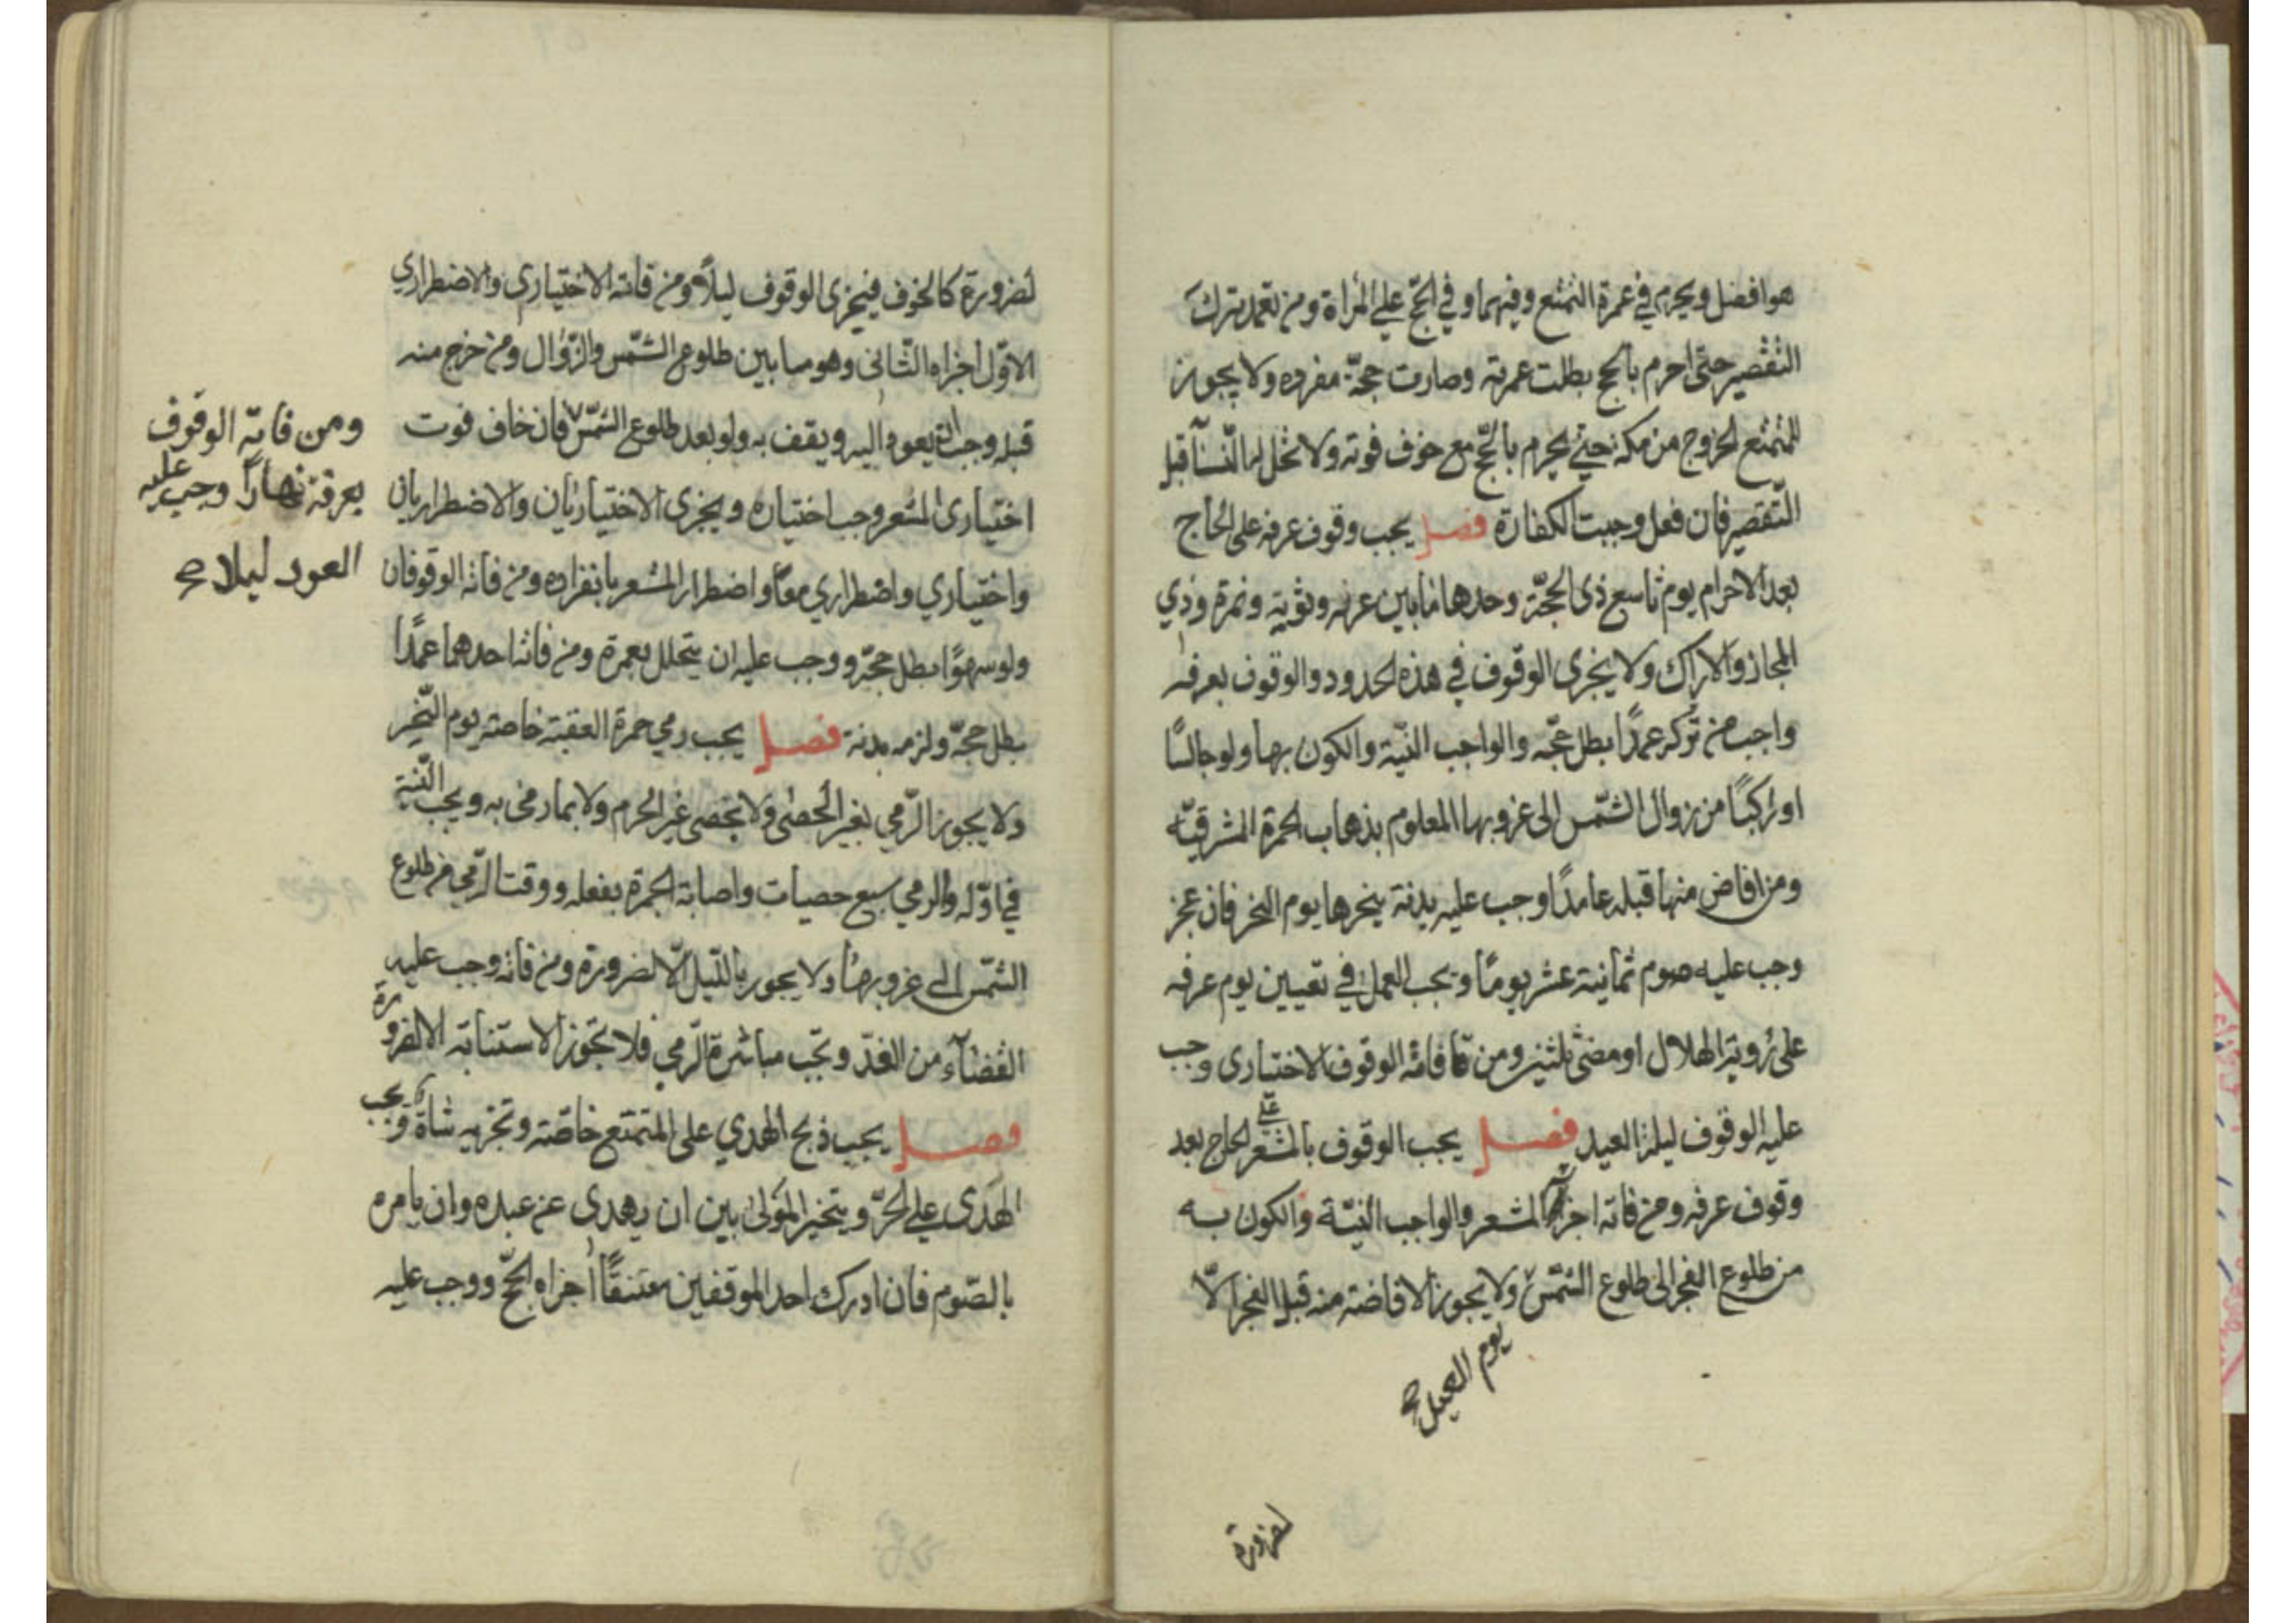 هو افضل ويحرم في عمرة التمتع وفيهما وفي الحجّ على المراة ومن تعمد ترك
التقصير حتّى احرم بالحج بطلت عمرته وصارت حجّة مفرده ولا يجوز
للمتمتع الخروج من مكة حتى يحرم بالحّج مع خوف فوته ولا تحل له النّسآ قبل
التّقصير فان فعل وجبت الكفارة فصل يجب وقوف عرفه على الحاج
بعد الاحرام يوم تاسع ذى الحجّة وحدها مابين عرنه وثويه ونمرة وذي
المجاز والاراك ولا يجزى الوقوف في هذه الحدود والوقوف بعرفه
واجب من تركه عمدًا بطل حجّه والواجب النيّة والكون بها ولو جالسًا
او راكبًا من زوال الشّمس الى غروبها المعلوم بذهاب الحمرة المشرقيّه
ومن افاض منها قبله عامدًا وجب عليه بدنة ينحرها يوم النحر فان عجز
وجب عليه صوم ثمانية عشر يومًا ويجب العمل في تعيين يوم عرفه
على رؤية الهلال او مضى ثلثين ومن فاته الوقوف الاختيارى وجب
عليه الوقوف ليلة العيد فصل يجب الوقوف بالمشعر على الحاج بعد
وقوف عرفه ومن فاته اجزاه المشعر والواجب النيّة والكون به
من طلوع الفجر الى طلوع الشّمس ولا يجوز الافاضة منه قبل الفجر الّا
يوم العيد صح
لضرورة
لضرورة كالخوف فيجزى الوقوف ليلاً ومن فاته الاختياري والاضطراري
الاوّل اجزاه الثّانى وهو ما بين طلوع الشّمس والزّوال ومن خرج منه
قبله وجب ان يعود اليه ويقف به ولو بعد طلوع الشّمس فان خاف فوت
اختيارى المشعر وجب اختياره ويجزى الاختياريان والاضطراريان
واختياري واضطراري معًا واضطرار المشعر بانفراده ومن فاته الوقوفان
ولو سهوًا بطل حجّه ووجب عليه ان يتحلل بعمرة ومن فاته احدهما عمدًا
بطل حجّه ولزمه بدنة فصل يجب رمي جمرة العقبة خاصة يوم النّحر
ولا يجوز الرّمي بغير الحصى ولا بحصى غير الحرم ولا بما رمى به ويجب النّية
في اوّله والرمي سبع حصيات واصابة الجمرة بفعله ووقت الرّمي من طلوع
الشّمس الى غروبها ولا يجوز باللّيل الّا لضرورة ومن فاته وجب عليه
القضآء من الغد وتجب مباشرة الرّمي فلا تجوز الاستنابة الا لضرورة
فصل يجب ذبح الهدي على المتمتع خاصّة وتجزيه شاة ويجب
الهدى على الحرّ ويتخير المولى بين ان يهدى عن عبده وان يامره
بالصّوم فان ادرك احد الموقفين معتقًا اجزاه الحجّ ووجب عليه
ومن فاته الوقوف
بعرفة نهارًا وجب عليه
العود ليلا صح